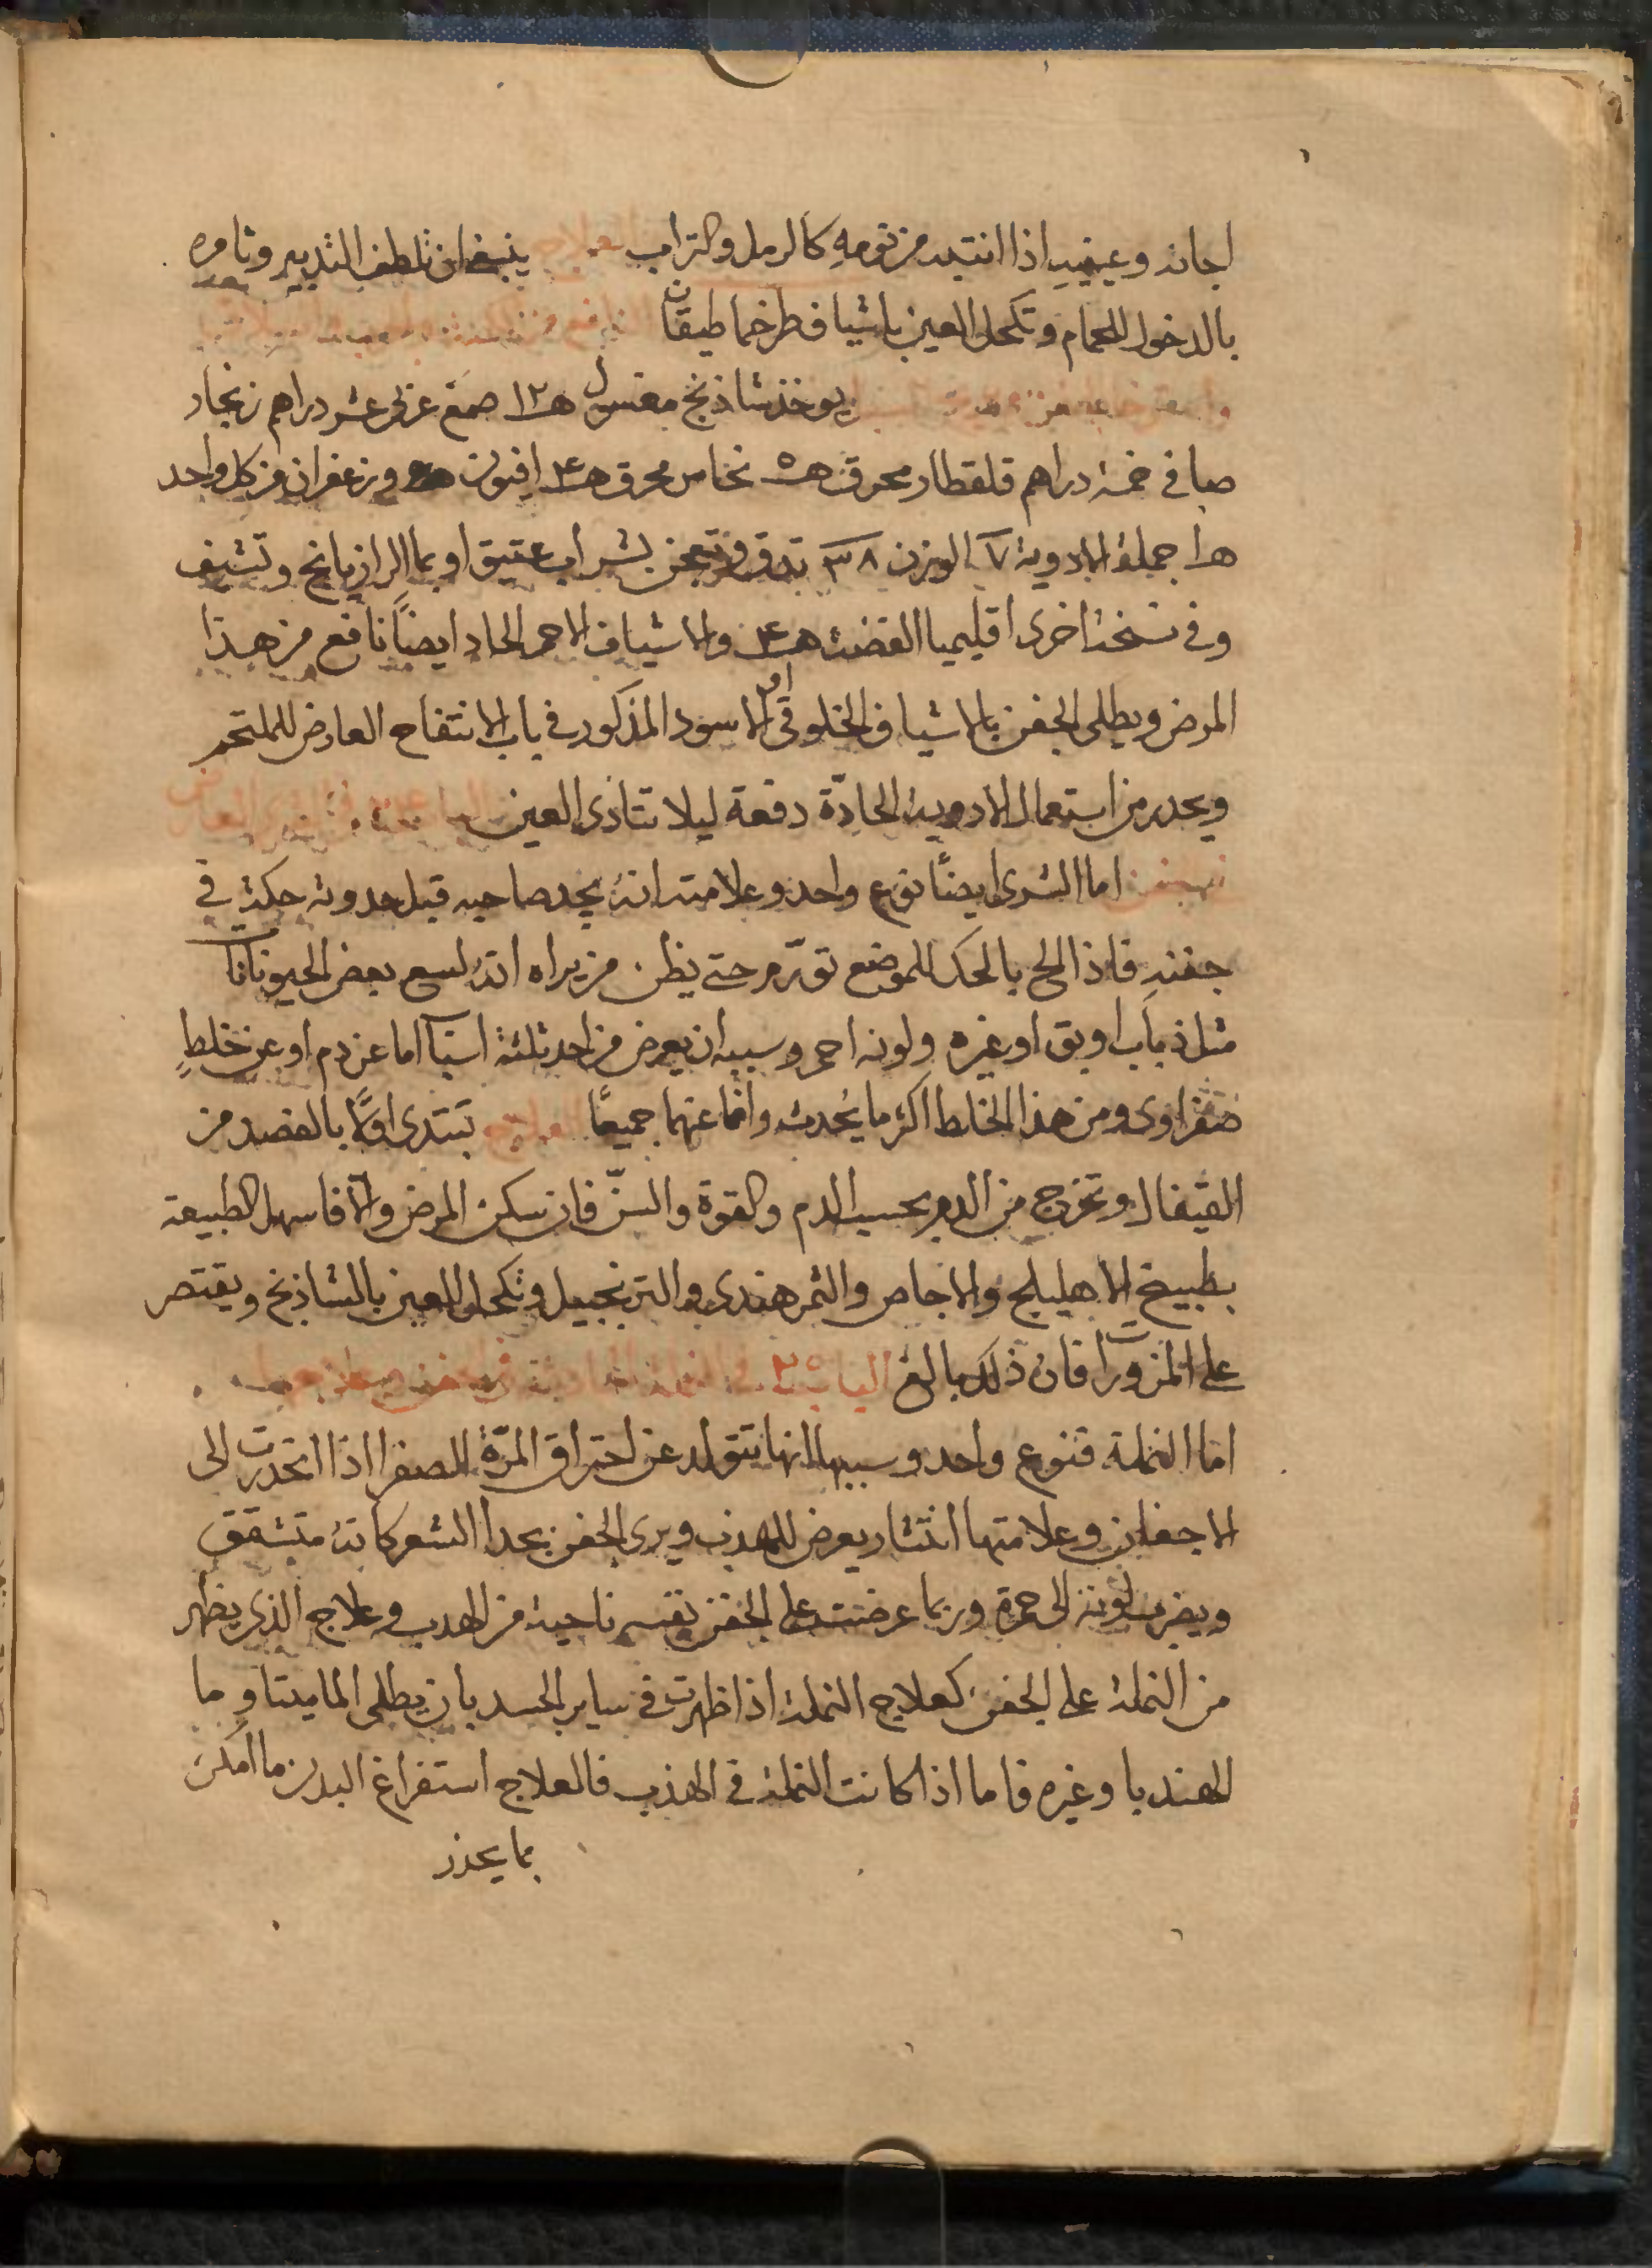 اجفانه وعينيه اذا انتبه من نومه كالرمل والتراب العلاج ينبغي ان تلطف التدبير وتامره
بالدخول للحمام وتكحل العين باشياف طرخماطيقان
يوخذ شاذنج مغسول ١٢ صمغ عربى عشر دراهم زنجار
صافى خمسة دراهم قلقطار محرق ه نحاس محرق افيون وزعفران من كل واحد
جملة الادوية ٧ الوزن ٣٨ تدق وتعجن بشراب عتيق او بما الرازيانج وتشيف
وفى نسخة اخرى اقليميا الفضة والاشياف الاحمر الحاد ايضاً نافع من هذا
المرض ويطلى الجفن بالاشياف الخلوقى او الاسود المذكور فى باب الانتفاح العارض للملتحم
ويحدر من استعمال الادوية الحادّة دفعة ليلا تتاذى العين
اما الشرى ايضاً نوع واحد وعلامته انه يجد صاحبه قبل حدوثه حكة فى
جفنه فاذا الح بالحك للموضع تورّم حتى يظن من يراه انه لسع بعض الحيونات
مثل ذباب او بق او غيره ولونه احمر وسببه ان يعرض من احد ثلثة اسباب اما عن دم او عن خلطٍ
صفراوى ومن هذا الخلط اكثر ما يحدث واما عنهما جميعًا العلاج تبتدى اولًا بالفصد من
القيفال وتخرج من الدم بحسب الدم والقوة والسنّ فان سكن المرض والا فاسهل الطبيعة
بطبيخ الاهليلج والاجاص والتمر هندى والترنجبيل وتكحل العين بالشاذنج ويقتصر
على المزورات فان ذلك بالغ الباب ٢٥ فى النملة الحادثة فى الجفن وعلاجها
اما النملة فنوع واحد وسببها انها تتولد عن احتراق المرّة الصفرا اذا انحدرت الى
الاجفان وعلامتها انتثار يعرض للهدب ويرى الجفن بحدا الشعر كانه متشقق
ويضرب لونه الى حمرة وربما عرضت على الجفن نفسه ناحية من الهدب وعلاج الذى يظهر
من النملة على الجفن كعلاج النملة اذا ظهرت فى ساير الجسد بان يطلى الماميتا وما
الهندبا وغيره فاما اذا كانت النملة فى الهذب فالعلاج استفراغ البدن ما امكن
بما يحذر